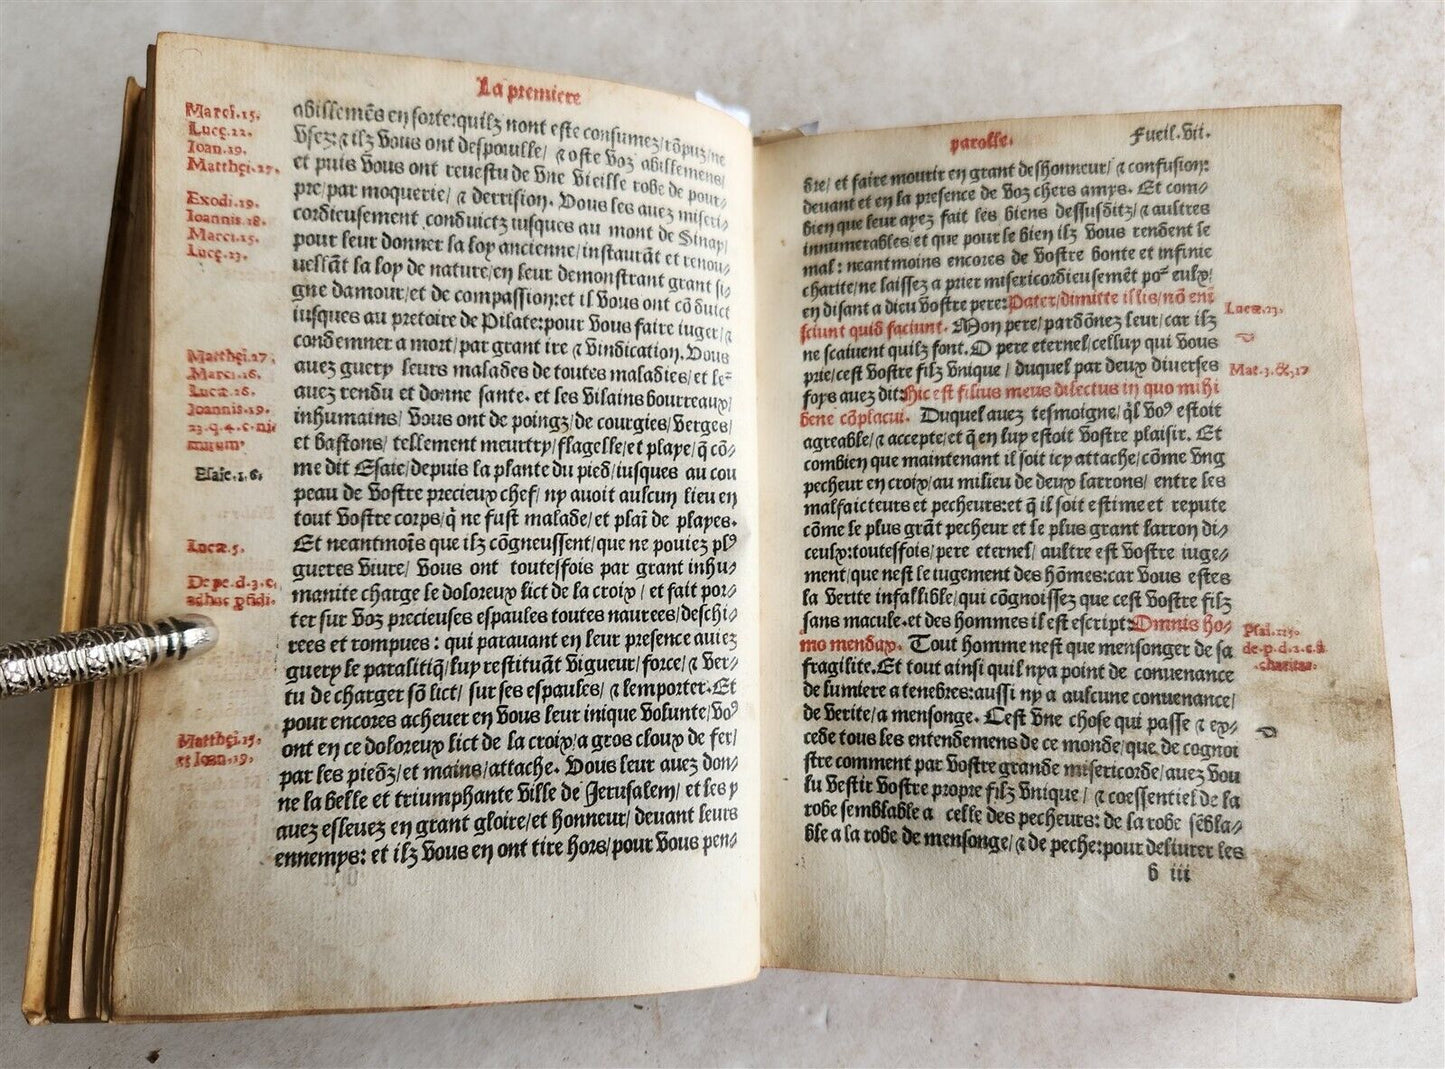 La premiere
Marci.15.
Lucę.22.
Ioan.19.
Matthęi.27.
Exodi.19.
Ioannis.18.
Marci.15.
Lucę.23.
Matthęi.27.
Marci.16.
Lucæ.26.
Ioannis.19.
23.q.4.c.nie
murum
Esaie.1.6.
Lucæ.5.
De pe.d.3.c.
adhuc ꝓfidi.
Matthęi.15.
et Ioan.19.
abillemēs en sorte:quilz nont este consumez/rōpuz/ne
vsez:⁊ ilz vous ont despouille/ ⁊ oste voz abillemens/
et puis vous ont reuestu de vne vieille robe de pour⸗
pre/par moquerie/ ⁊ derrision. Vous les auez miseri⸗
cordieusement conduictz iusques au mont de Sinay/
pour leur donner la loy ancienne/instaurāt et renou⸗
uellāt la loy de nature/en leur demonstrant grant si⸗
gne damour/et de compassion:et il vous ont cōduict
iusques au pretoire de Pilate:pour vous faire iuger/⁊
condemner a mort/par grant ire ⁊ vindication. Vous
auez guery leurs malades de toutes maladies/et le⁊
auez rendu et donne sante. et les vilains bourreaux/
inhumains/ vous ont de poingz/de courgies/verges/
et bastons/ tellement meurtry/flagelle/et playe/q̄ cō⸗
me dit Esaie/depuis la plante du pied/iusques au cou
peau de vostre precieux chef/ ny auoit aulcun lieu en
tout vostre corps/q̄ ne fust malade/et plaī de playes.
Et neantmoīs que ilz cōgneussent/que ne pouiez plꝰ
gueres viure/ vous ont toutesfois par grant inhu⸗
manite charge le doloreux lict de la croix/ et fait por⸗
ter sur voz precieuses espaules toutes naurees/deschi⸗
rees et rompues : qui parauant en leur presence auiez
guery le paralitiq̄/luy restituāt vigueur/force/⁊ ver⸗
tu de charger sō lict/ sur ses espaules/ ⁊ lemporter.Et
pour encores acheuer en vous leur inique volunte/voꝰ
ont en ce doloreux lict de la croix/a gros cloux de fer/
par les piedz/et mains/attache. Vous leur auez don⸗
ne la belle et triumphante ville de Jerusalem/ et les y
auez esleuez en grant gloire/et honneur/ deuant leurs
ennemys: et ilz vous en ont tire hors/pour vous pen⸗
parolle.
Fueil.vii.
dre/ et faire mourir en grant deshonneur/ ⁊ confusion:
deuant et en la presence de voz chers amys. Et com⸗
bien que leur ayez fait les biens dessusditz/⁊ aultres
innumerables/et que pour le bien ilz vous rendent le
mal : neantmoins encores de vostre bonte et infinie
charite/ne laissez a prier misericordieusemēt po⁊ eulx/
en disant a dieu vostre pere:Pater/dimitte illis/nō enī
sciunt quid faciunt. Mon pere/pardōnez leur/car ilz
ne scaiuent quilz font.O pere eternel/celluy qui vous
prie/cest vostre filz vnique/ duquel par deux diuerses
foys auez dit:Hic est filius meus dilectus in quo mihi
bene cōplacui. Duquel auez tesmoigne/q̄l voꝰ estoit
agreable/⁊ accepte/et q̄ en luy estoit vostre plaisir. Et
combien que maintenant il soit icy attache/cōme vng
pecheur en croix/au milieu de deux larrons/ entre les
malfaicteurs et pecheurs:et q̄ il soit estime et repute
cōme le plus grāt pecheur et le plus grant larron di⸗
ceulx:toutesfois/pere eternel/ aultre est vostre iuge⸗
ment/que nest le iugement des hōmes:car vous estes
la verite infallible/qui cōgnoissez que cest vostre filz
sans macule.et des hommes il est escript:Omnis ho⸗
mo mendax. Tout homme nest que mensonger de sa
fragilite.Et tout ainsi quil nya point de conuenance
de lumiere a tenebres:aussi ny a aulcune conuenance/
de verite/a mensonge. Cest vne chose qui passe ⁊ ex⸗
cede tous les entendemens de ce monde/que de cognoi
stre comment par vostre grande misericorde/auez vou
lu vestir vostre propre filz vnique/ ⁊ coessentiel de la
robe semblable a celle des pecheurs: de la robe sēbla⸗
ble a la robe de mensonge/⁊ de peche:pour deliurer les
b iii
Lucæ.23.
Mat.3.&.17
Psal.115.
de.p.d.2.c.ß.
charitas.